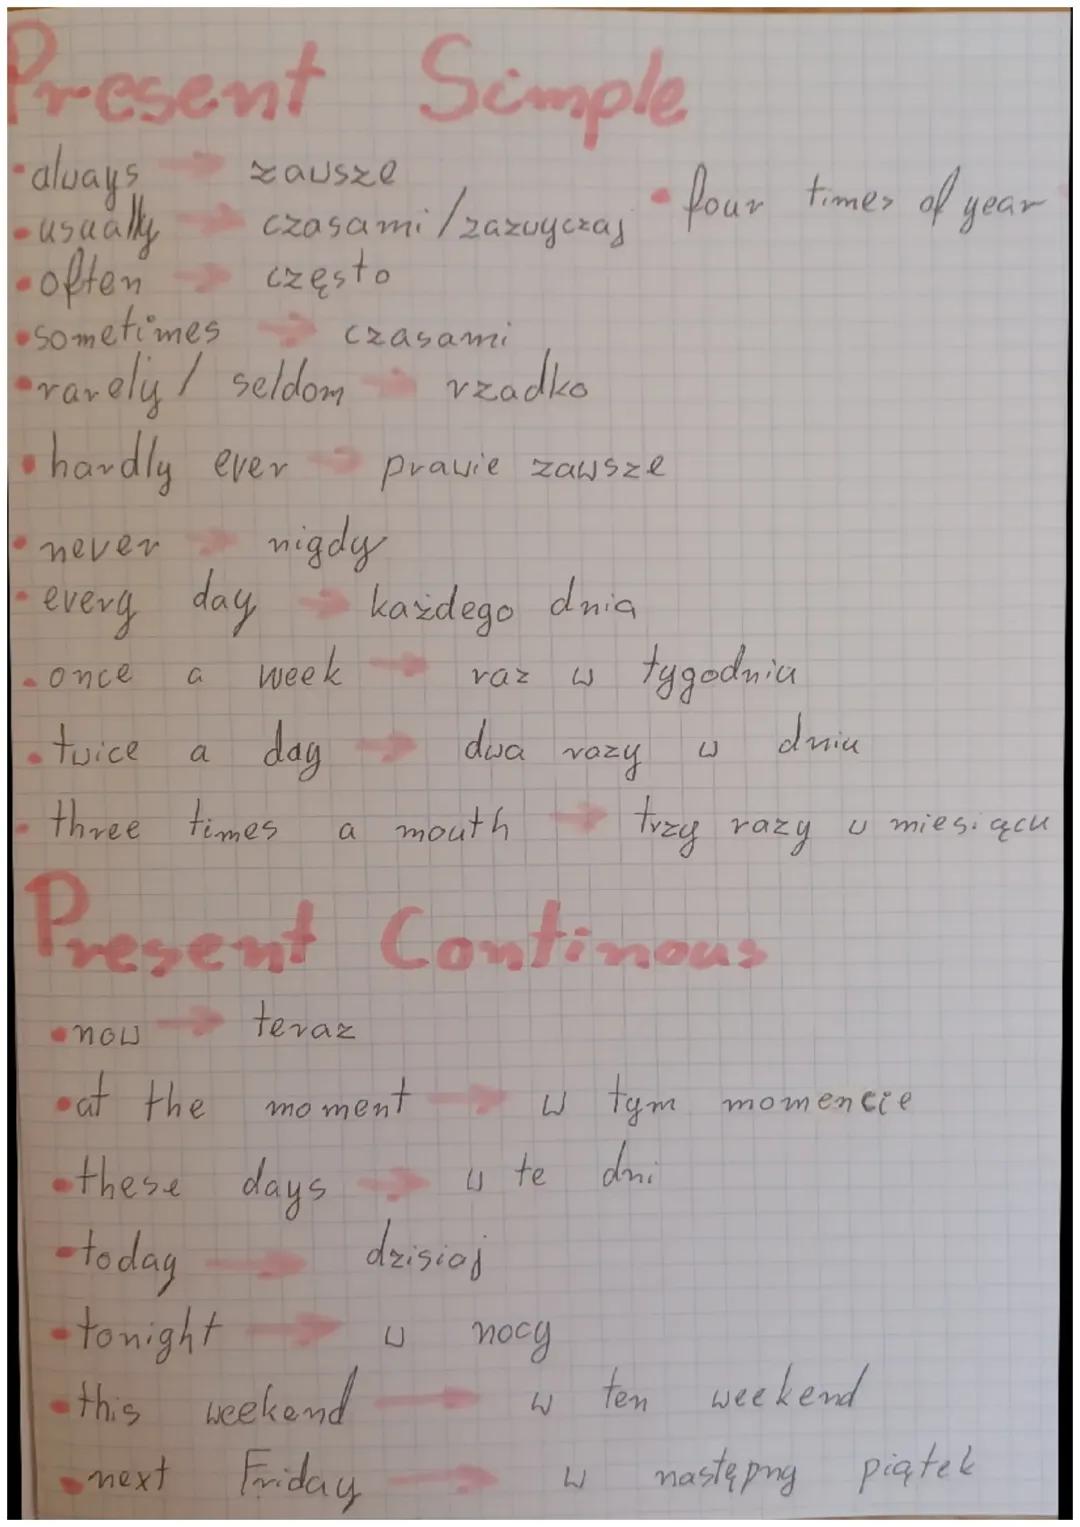 Present Simple
•always → zawsze
•usually → czasami/zazwyczaj
•four times of year
•often → często
•sometimes → czasami
•rarely / seldom → rzadko
•hardly ever → prawie zawsze
•never → nigdy
•every day → każdego dnia
•once a week → raz w tygodniu
•twice a day → dwa razy w dniu
•three times a mouth → trzy razy w miesiącu
Present Continous
•now → teraz
•at the moment → w tym momencie
•these days → w te dni
•today → dzisiaj
•tonight → w nocy
•this weekend → w ten weekend
•next Friday → w następny piątek